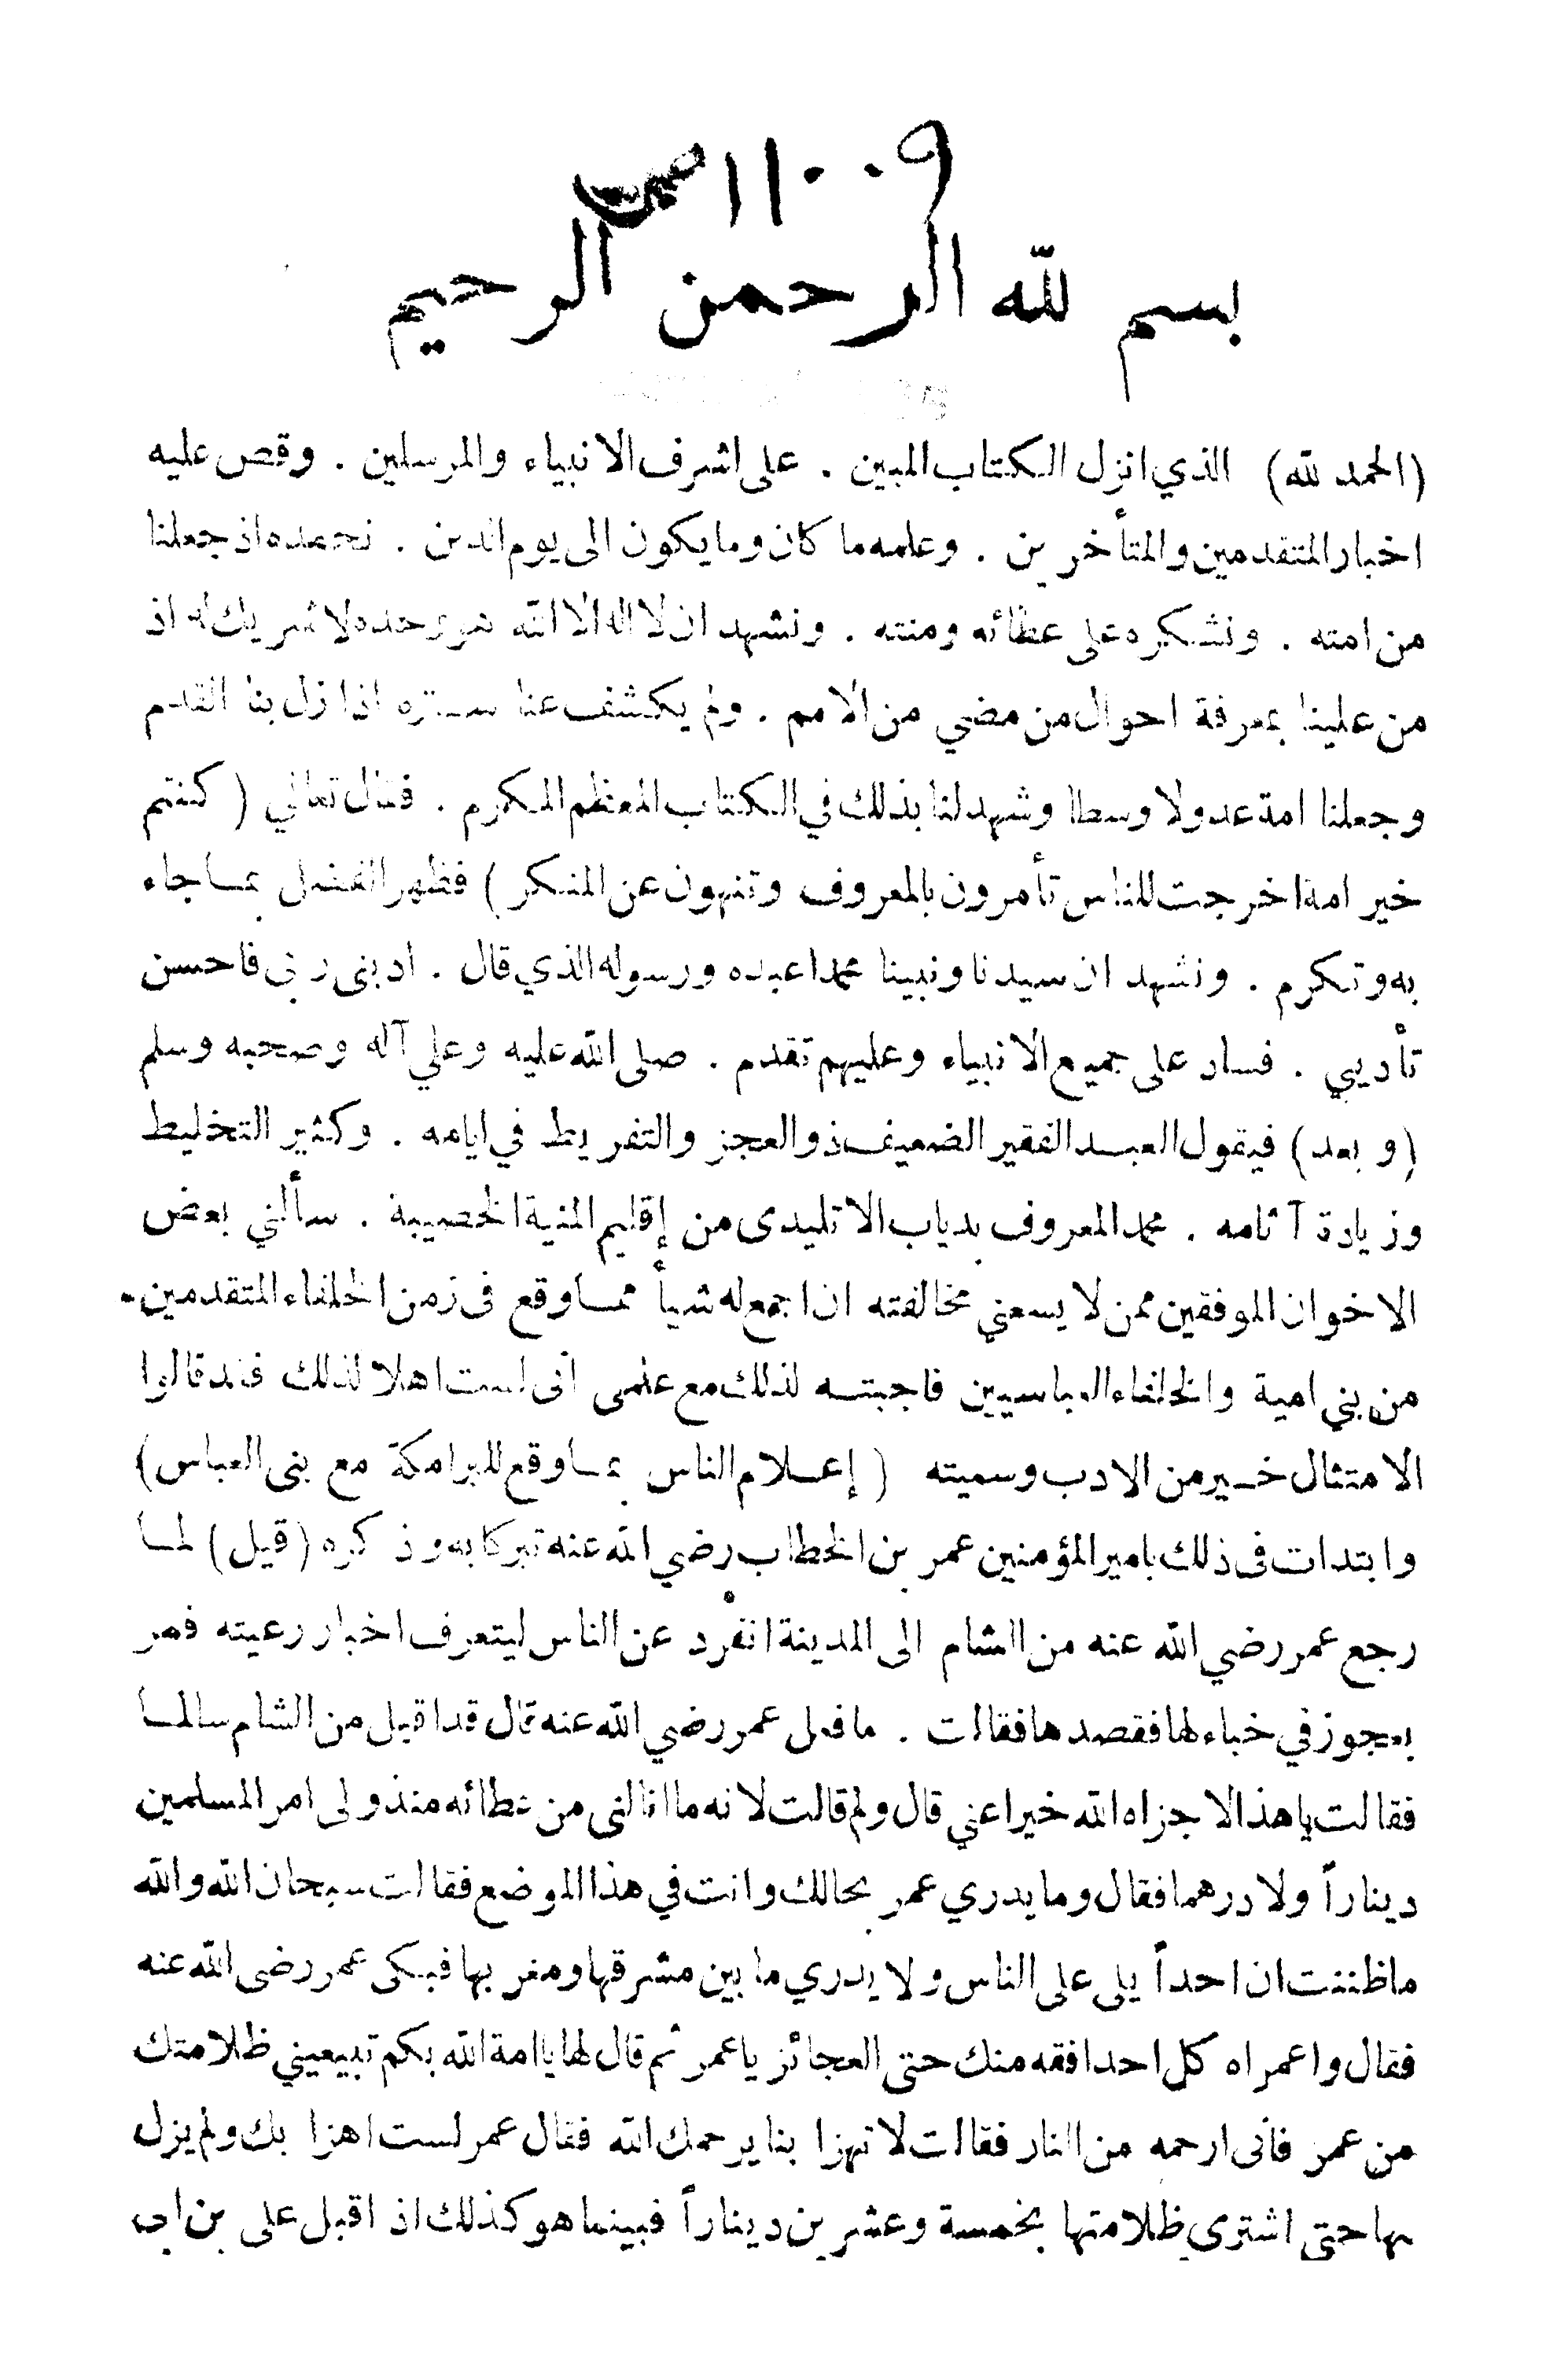 بسم لله الرحمن الرحيم
(الحمد لله) الذي انزل الكتاب المبين . على اشرف الانبياء والمرسلين . وقص عليه
اخبار المتقدمين والمتأخرين . وعلمه ما كان وما يكون الى يوم الدين . نحمده اذ جعلنا
من امته . ونشكره على عطائه ومنته . ونشهد ان لا اله الا الله هو وحده لا شريك له اذ
من علينا بمعرفة احوال من مضي من الامم . ولم يكشف عنا ستره اذا زل بنا القدم
وجعلنا امة عدولا وسطا وشهد لنا بذلك في الكتاب المعظم المكرم . فقال تعالي ( كنتم
خير امة اخرجت للناس تأمرون بالمعروف وتنهون عن المنكر ) فظهر الفضل بما جاء
به وتكرم . ونشهد ان سيدنا ونبينا محمدا عبده ورسوله الذي قال . ادبنى ربى فاحسن
تأديبي . فساد على جميع الانبياء وعليهم تقدم . صلى الله عليه وعلي آله وصحبه وسلم
(وبعد) فيقول العبد الفقير الضعيف ذو العجز والتفريط في ايامه . وكثير التخليط
وزيادة آثامه . محمد المعروف بدياب الاتليدى من إقليم المنية الخصيبة . سألني بعض
الاخوان الموفقين ممن لا يسعني مخالفته ان اجمع له شيأ مما وقع فى زمن الخلفاء المتقدمين
من بني امية والخلفاء العباسيين فاجبته لذلك مع علمى أنى لست اهلا لذلك فقد قالوا
الامتثال خير من الادب وسميته ( إعلام الناس بما وقع للبرامكة مع بنى العباس)
وابتدات فى ذلك بامير المؤمنين عمر بن الخطاب رضي الله عنه تبركا به وذكره (قيل) لما
رجع عمر رضي الله عنه من الشام الى المدينة انفرد عن الناس ليتعرف اخبار رعيته فمر
بعجوز في خباء لها فقصدها فقالت . ما فعل عمر رضي الله عنه قال قد اقبل من الشام سالما
فقالت يا هذا لا جزاه الله خيرا عني قال ولم قالت لانه ما انالنى من عطائه منذ ولى امر المسلمين
ديناراً ولا درهما فقال وما يدري عمر بحالك وانت في هذا الموضع فقالت سبحان الله والله
ما ظننت ان احداً يلى على الناس ولا يدري ما بين مشرقها ومغربها فبكى عمر رضى الله عنه
فقال واعمراه كل احد افقه منك حتى العجائز يا عمر ثم قال لها يا امة الله بكم تبيعيني ظلامتك
من عمر فانى ارحمه من النار فقالت لا تهزا بنا يرحمك الله فقال عمر لست اهزا بك ولم يزل
بها حتى اشترى ظلامتها بخمسة وعشرين ديناراً فبينما هو كذلك اذ اقبل على بن ابى